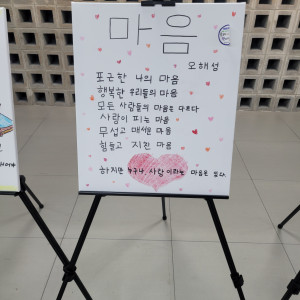 마음
오해성
포근한 나의 마음
행복한 우리들의 마음
모든 사람들의 마음은 다르다
사랑이 피는 마음
무섭고 매서운 마음
힘들고 지친 마음
하지만 누구나 사랑이라는 마음은 있다.